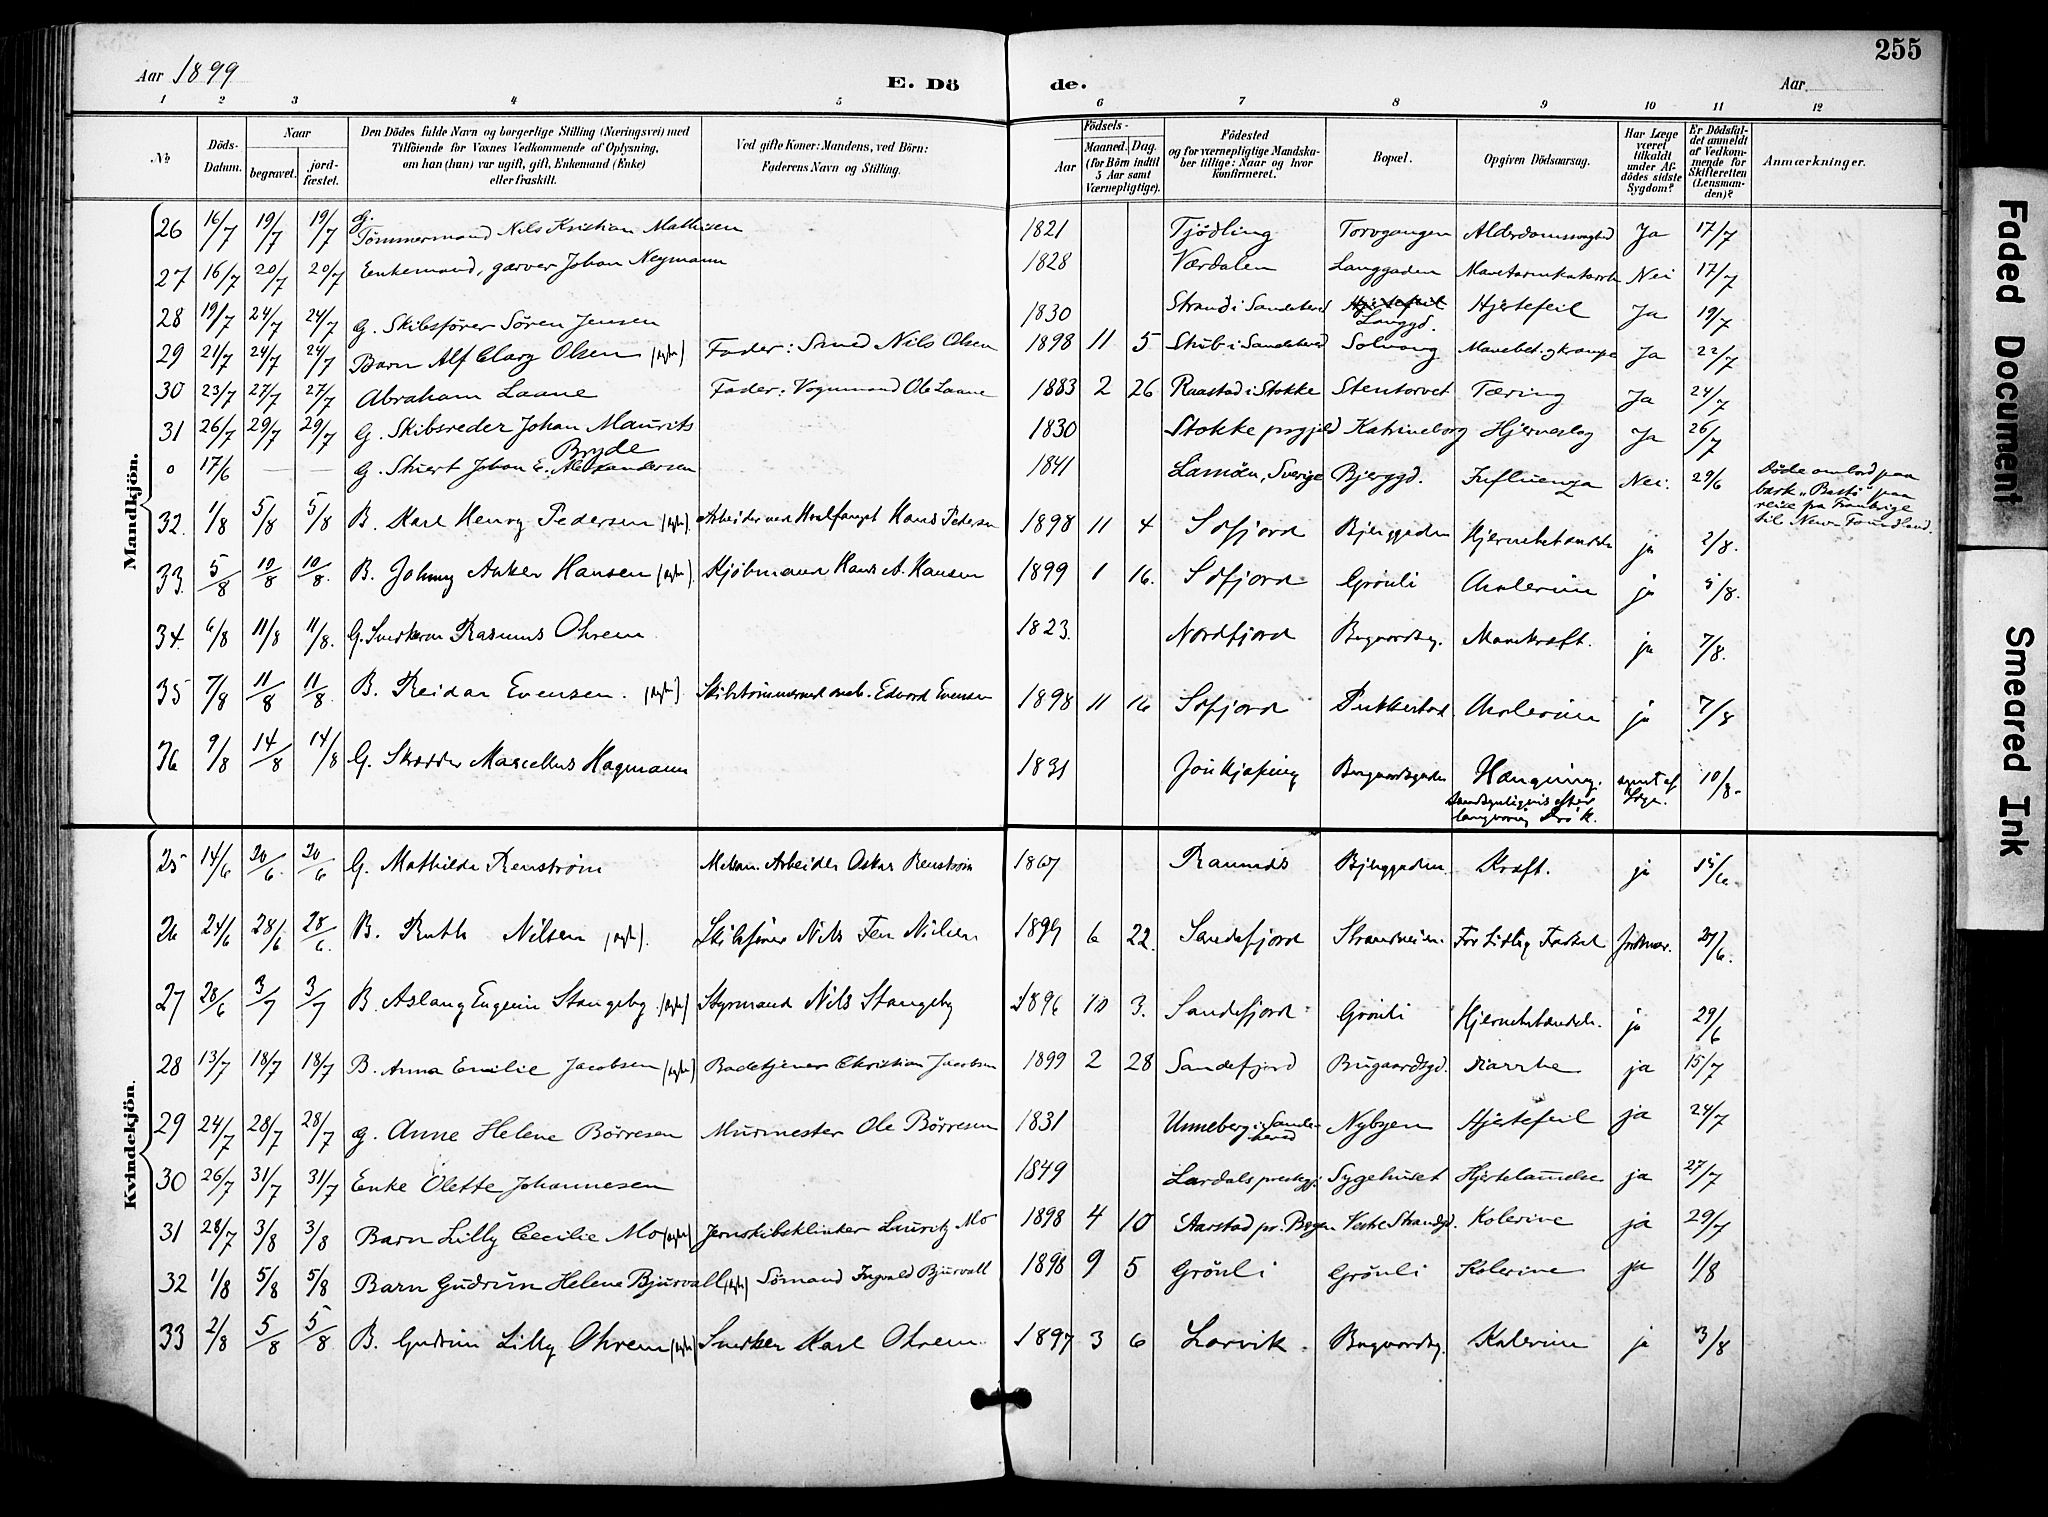 255
Aar 1899
E. Dö
de.
Aar
1 2 3 4 5 6 7 8 9 10 11 12
№
Döds-Datum.
Naar
begravet.
jord-fæstet.
Den Dödes fulde Navn og borgerlige Stilling (Næringsvei) med
Tilföiende for Voxnes Vedkommende af Oplysning,
om han (hun) var ugift, gift, Enkemand (Enke)
eller fraskilt.
Ved gifte Koner: Mandens, ved Börn:
Faderens Navn og Stilling.
Födsels-
Aar
Maaned. Dag.
(for Börn indtil
5 Aar samt
Værnepligtige).
Födested
og for værnepligtige Mandska-
ber tillige: Naar og hvor
konfirmeret.
Bopæl.
Opgiven Dödsaarsag.
Har Læge
været
tilkaldt
under Af-
dödes sidste
Sygdom?
Er Dödsfal-
det anmeldt
af Vedkom-
mende for
Skifteretten
(Lensman-
den)?
Anmærkninger.
Mandkjön.
26 16/7 19/7 19/7 G. Tömmermand Nils Kristian Mathisen 1821 Tjødling Torvgangen Alderdomssvaghed Ja 17/7
27 16/7 20/7 20/7 Enkemand, garver Johan Neymann 1828 Værdalen Langgaden Mavetarmkatarrh Nei 17/7
28 19/7 24/7 24/7 G. Skibsfører Søren Jensen 1830 Strand i Sandeherred Hjertefeil Langgd. Hjertefeil Ja 19/7
29 21/7 24/7 24/7 Barn Alf Clary Olsen (ægte) Fader: Smed Nils Olsen 1898 11 5 Skub i Sandeherred Solvang Mavebet. og krampe Ja 22/7
30 23/7 27/7 27/7 Abraham Laane Fader: Vognmand Ole Laane 1883 2 26 Raastad i Stokke Stentorvet Tæring Ja 24/7
31 26/7 29/7 29/7 G. Skibsreder Johan Maurits Bryde 1830 Stokke prgjeld Katrineborg Hjerneslag Ja 26/7
0 17/6 — — G. Stuert Johan E. Alexandersen 1841 Lamøen, Sverige Bjerggd. Influenza Nei. 29/6 Døde ombord paa
bark „Bastø" paa
reise fra Frankrige
til New-Foundland.
32. 1/8 5/8 5/8 B. Karl Henry Pedersen (ægte) Arbeider ved Hvalfanget Hans Pedersen 1898 11 4 Sdfjord Bjerggaden Hjernebetændelse ja 2/8.
33. 5/8 10/8 10/8. B. Johnny Anker Hansen (ægte). Kjøbmand Hans A. Hansen 1899 1 16. Sdfjord Grönli Cholerine ja 5/8.
34. 6/8 11/8 11/8. G. Snedkersv. Rasmus Ohrem 1823. Nordfjord Bugaardsg. Mavekræft. ja 7/8.
35 7/8 11/8 11/8. B. Reidar Evensen. (ægte). Skibstømmermand Edvard Evensen 1898 11 16 Sdfjord Pukkestad Cholerine ja 7/8
36 9/8 14/8 14/8 G. Skrædder Marcellus Hagmann 1831 Jönkjøping Bugaardsgaden Hængning. sandsynligvis efter
langvarig Drik. synet af Læge. 10/8.
Kvindekjön.
25 14/6 20/6. 20/6 G. Mathilde Renström Mekan. Arbeider Oskar Renström 1867 Ramnæs Bjerggaden. Kræft. ja 15/6.
26 24/6 28/6 28/6. B. Ruth Nilsen (ægte). Skibsfører Nils Fen Nilsen 1899 6 22. Sandefjord Strandveien. For tidlig Fødsel Jordmor. 27/6.
27 28/6 3/7 3/7 B. Aslaug Eugenie Stangeby. (ægte) Styrmand Nils Stangeby 1896 10 3. Sandefjord Grönli Hjernebetændelse. ja 29/6
28 13/7 18/7 18/7 B. Anna Emilie Jacobsen (ægte) Badetjener Christian Jacobsen 1899 2 28 Sandefjord Bugaardsgd. Diarrhe ja 15/7
29 24/7 28/7 28/7 g. Anne Helene Børresen Murmester Ole Børresen 1831 Unneberg i Sandeherred Nybyen Hjertefeil ja 24/7
30 26/7 31/7 31/7 Enke Olette Johannesen 1849 Lardals prestegj. Sygehuset Hjertelamelse ja 27/7
31 28/7 3/8 3/8 Barn Lilly Cecilie Mo (ægte) Jernskibsklinker Lauritz Mo 1898 4 10 Aarstad pr. Bergen Vestre Strandgd. Kolerine ja 29/7
32 1/8 5/8 5/8 Barn Gudrun Helene Bjurvall (ægte) Sömand Ingvald Bjurvall 1898 9 5 Grönli Grönli Kolerine ja 1/8
33 2/8 5/8 5/8. B. Gudrun Lilly Ohrem (ægte) Snedker Karl Ohrem. 1897 3 6 Larvik. Bugaardsg. Kolerine ja 3/8
Faded Document
Smeared Ink